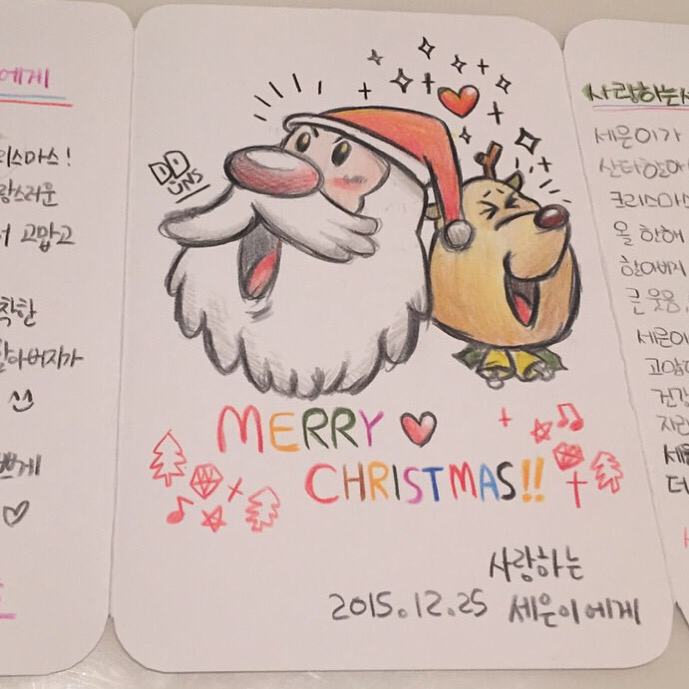 에게
리스마스!
랑스러운
서 고맙고
착한
할아버지가
쁘게
DD
UNS
MERRY
CHRISTMAS!!
사랑하는
2015.12.25 세은이에게
사랑하는
세은이가
산타할아
크리스마스
올 한해
할아버지
큰 웃음
세은이
건강